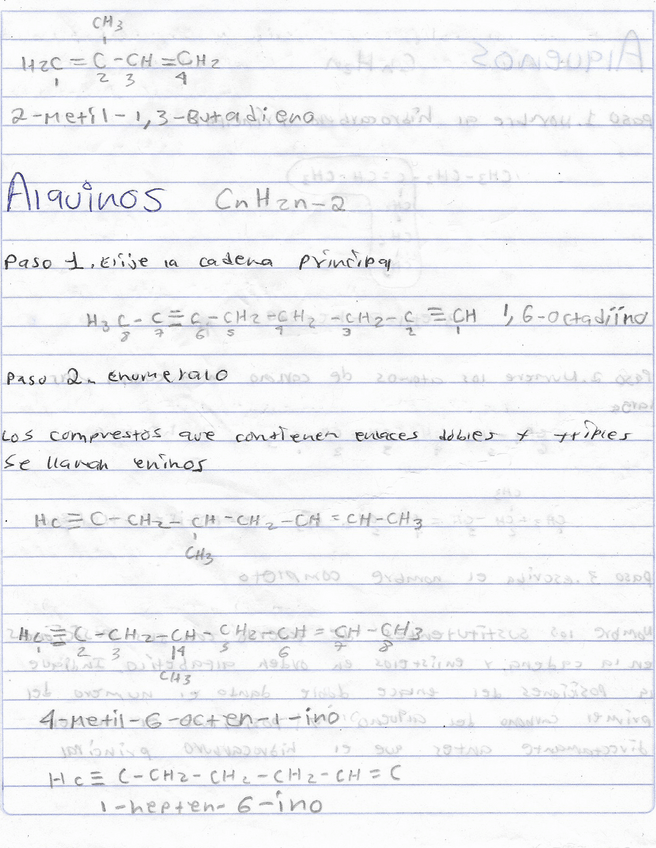 CH3
H2C = C - CH = CH2
1 2 3 4
2-Metil-1,3-Butadieno
Alquinos CnH2n-2
Paso 1. Elije la cadena principal
H3C - C ≡ C - CH2 - CH2 - CH2 - C ≡ CH 1,6-octadiino
8 7 6 5 4 3 2 1
Paso 2. enumeralo
Los compuestos que contienen enlaces dobles y triples
se llaman eninos
HC ≡ C - CH2 - CH - CH2 - CH = CH - CH3
CH3
HC ≡ C - CH2 - CH - CH2 - CH = CH - CH3
1 2 3 14 5 6 7 8
CH3
4-metil-6-octen-1-ino
HC ≡ C - CH2 - CH2 - CH2 - CH = C
1-hepten-6-ino